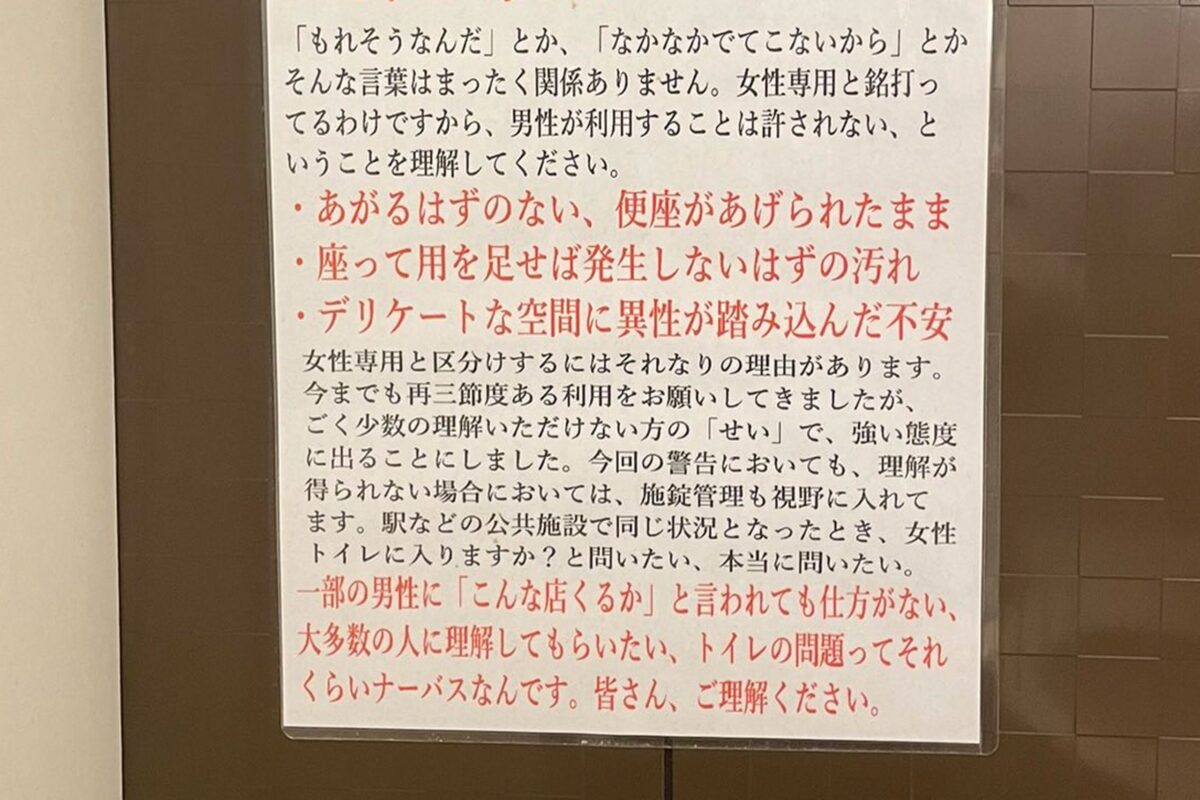 「もれそうなんだ」とか、「なかなかでてこないから」とか
そんな言葉はまったく関係ありません。女性専用と銘打っ
てるわけですから、男性が利用することは許されない、と
いうことを理解してください。
・あがるはずのない、便座があげられたまま
・座って用を足せば発生しないはずの汚れ
・デリケートな空間に異性が踏み込んだ不安
女性専用と区分けするにはそれなりの理由があります。
今までも再三節度ある利用をお願いしてきましたが、
ごく少数の理解いただけない方の「せい」で、強い態度
に出ることにしました。今回の警告においても、理解が
得られない場合においては、施錠管理も視野に入れて
ます。駅などの公共施設で同じ状況となったとき、女性
トイレに入りますか？と問いたい、本当に問いたい。
一部の男性に「こんな店くるか」と言われても仕方がない、
大多数の人に理解してもらいたい、トイレの問題ってそれ
くらいナーバスなんです。皆さん、ご理解ください。